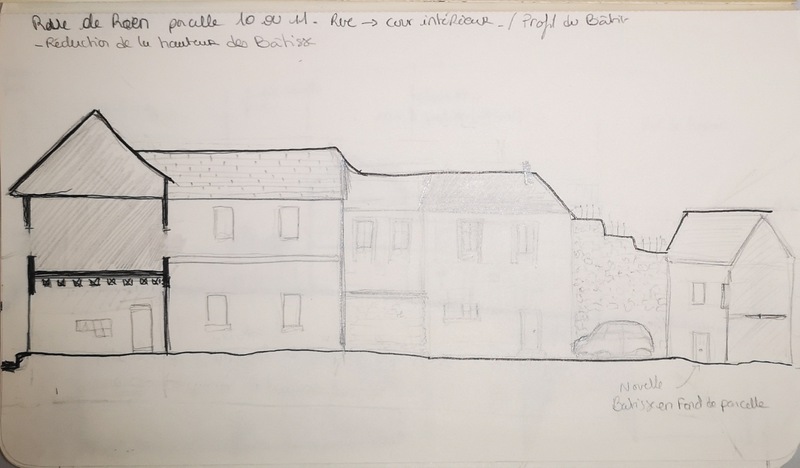 Rue de Rouen parcelle 10 ou 11. Rue → cour intérieur - / Profil du Bâti
- Réduction de la hauteur des Bâtisse
Novelle
Batisse en fond de parcelle